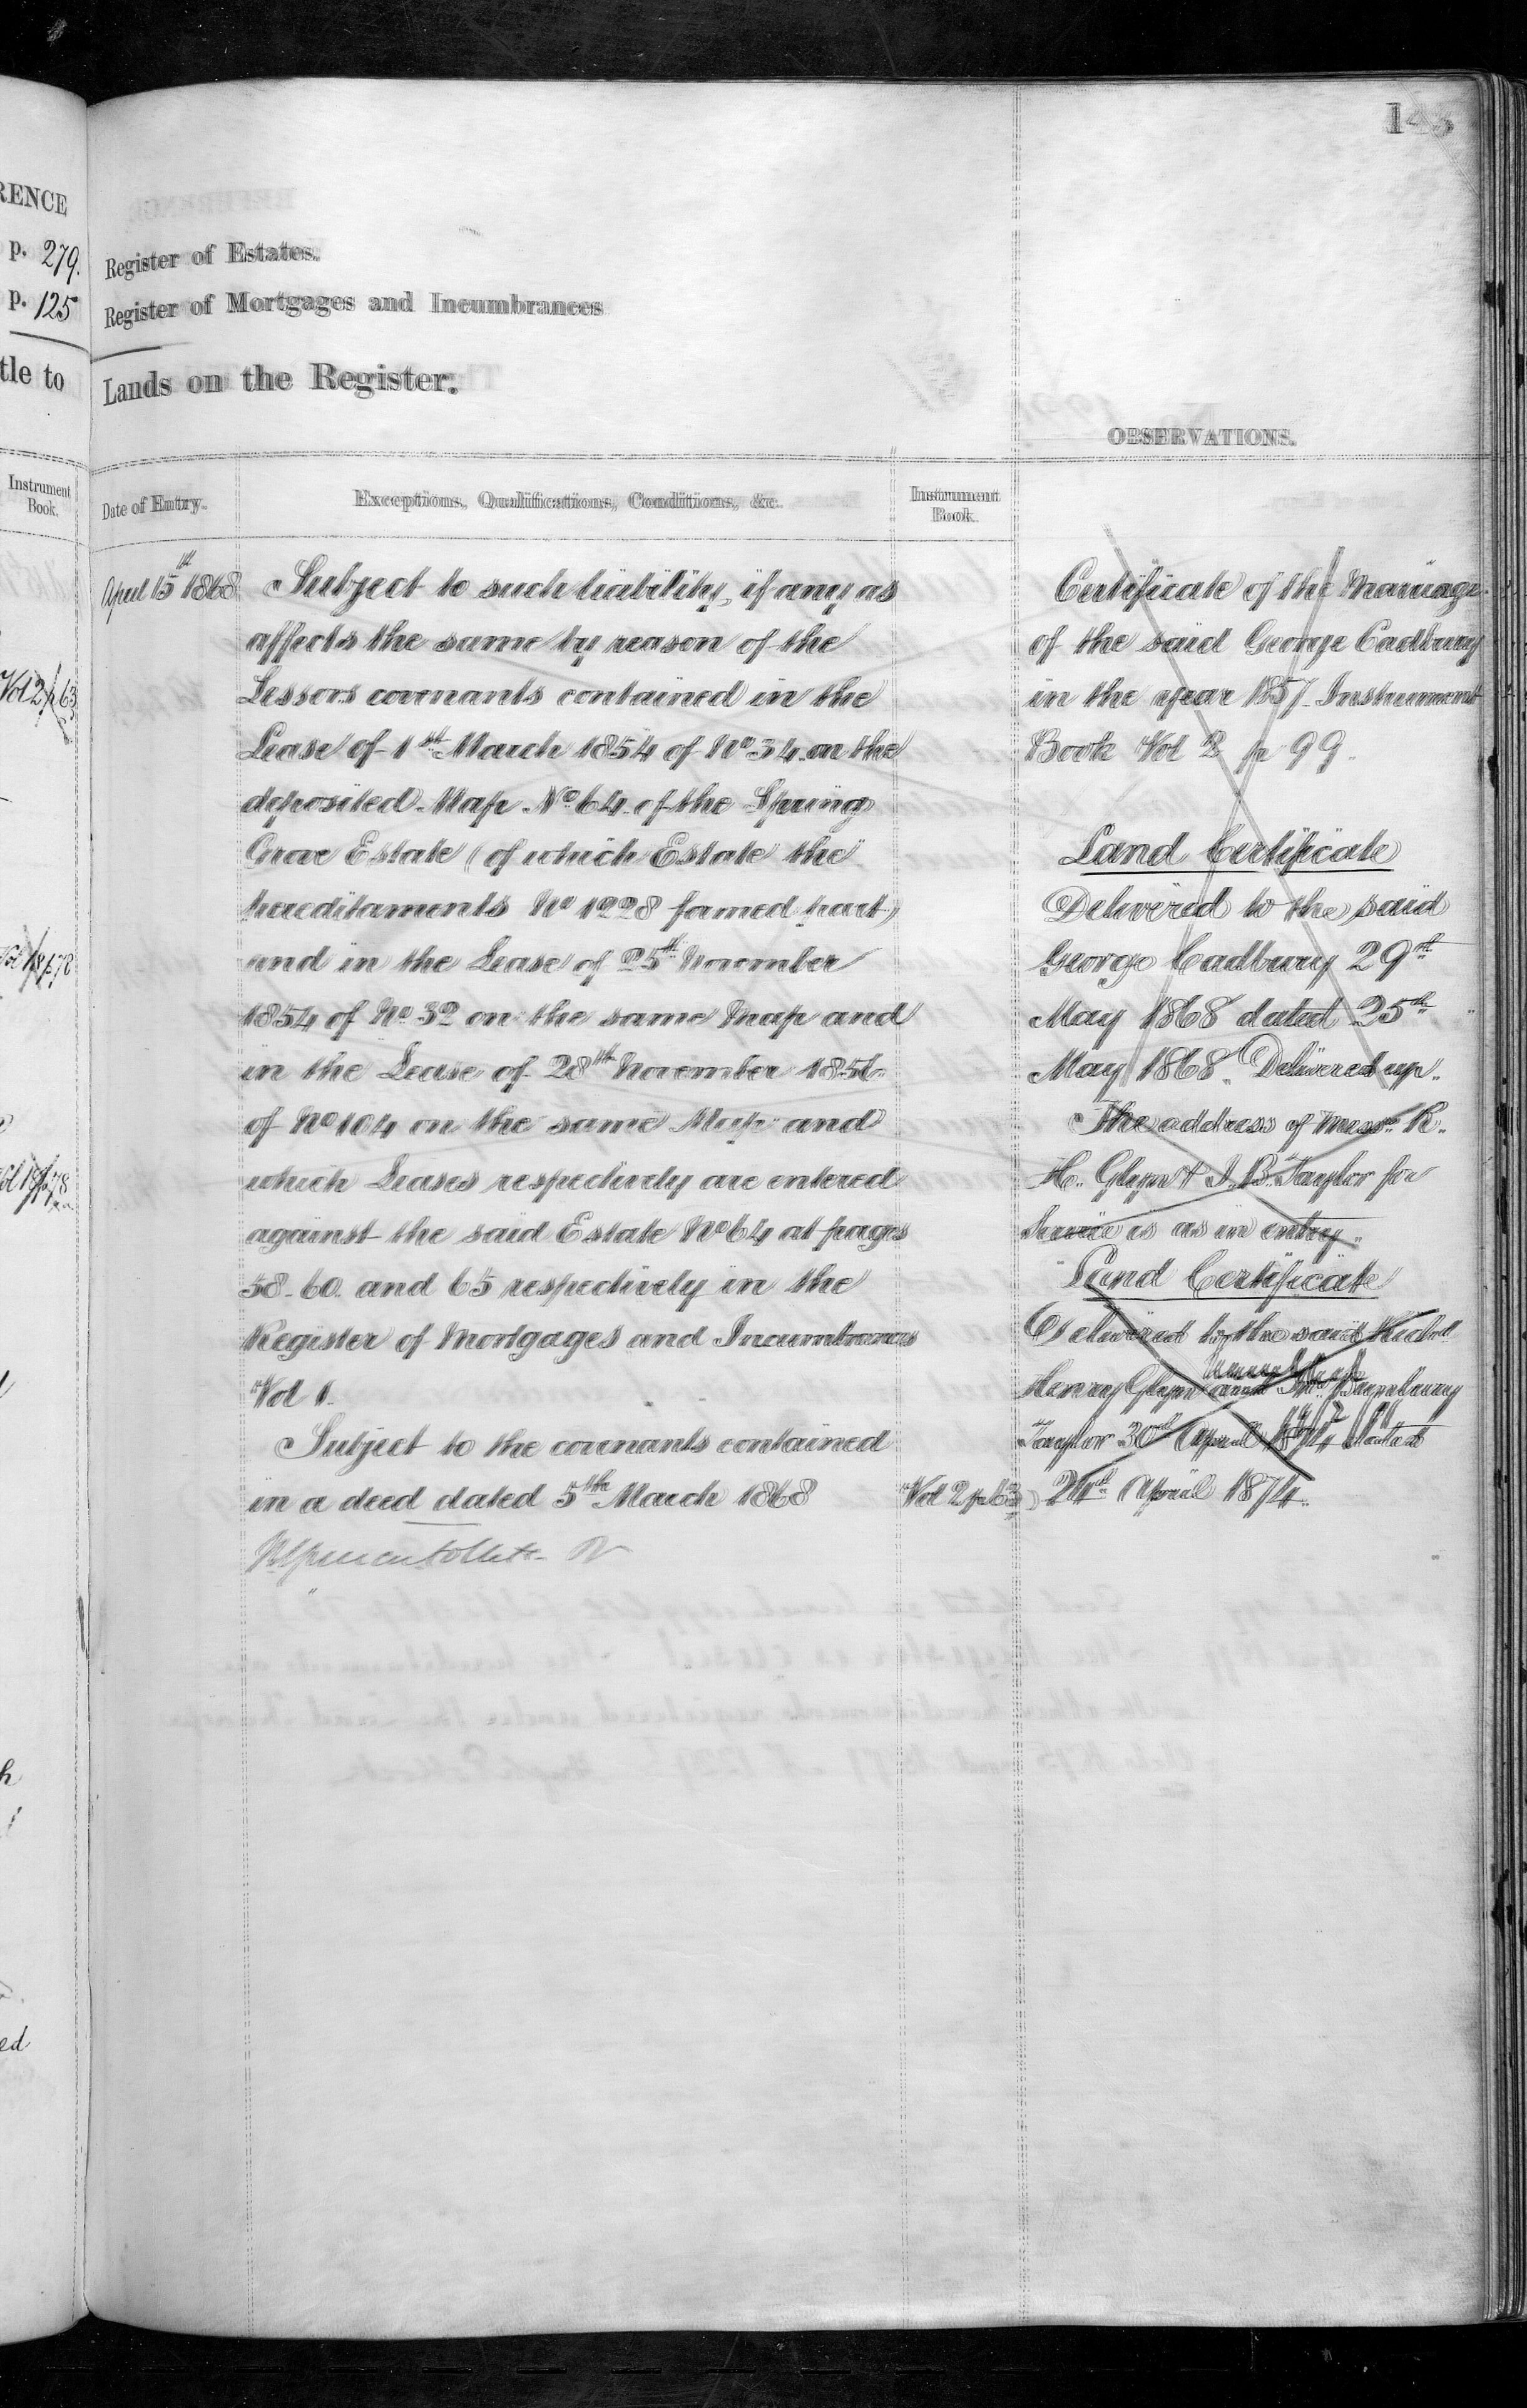 143
RENCE
p. 279.
p. 125
tle to
Instrument
Book.
Vol 2 p 63
Register of Estates.
Register of Mortgages and Incumbrances
Lands on the Register.
OBSERVATIONS.
Date of Entry.
Exceptions, Qualifications, Conditions, &c.
Instrument
Book.
April 15th 1868
Subject to such liability, if any as
affects the same by reason of the
Lessors covenants contained in the
Lease of 1st March 1854 of No 34 on the
deposited Map No 64 of the Spring
Grove Estate (of which Estate the
hereditaments No 1228 formed part)
and in the Lease of 25th November
1854 of No 32 on the same Map and
in the Lease of 28th November 1856
of No 104 on the same Map and
which Leases respectively are entered
against the said Estate No 64 at pages
58. 60. and 65 respectively in the
Register of Mortgages and Incumbrances
Vol 1.
Subject to the covenants contained
in a deed dated 5th March 1868
Vol 2 p 63
Certificate of the Marriage
of the said George Cadbury
in the year 1857 Instrument
Book Vol 2 p 99.
Land Certificate
Delivered to the said
George Cadbury 29th
May 1868 dated 25th
May 1868. Delivered up.
The address of Messrs R.
H. Glynn & J. B. Taylor for
Service is as in entry.
Land Certificate
Delivered to the said Richd
Henry Glynn and
Taylor 30th April 1874 dated
24th April 1874.